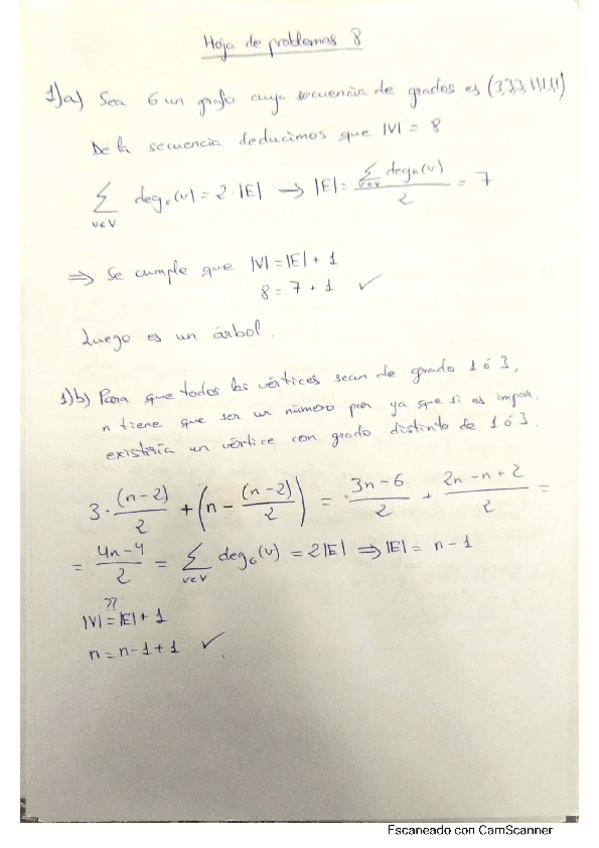 Hoja de problemas 8
1)a) Sea G un grafo cuya secuencia de grados es (3,3,3,1,1,1,1,1)
De la secuencia deducimos que |V| = 8
∑_{v∈V} deg_G(v) = 2·|E| → |E| = ∑_{v∈V} deg_G(v) / 2 = 7
⇒ Se cumple que |V| = |E| + 1
8 = 7 + 1 ✓
Luego es un árbol.
1)b) Para que todos los vértices sean de grado 1 ó 3,
n tiene que ser un número par ya que si es impar.
existiría un vértice con grado distinto de 1 ó 3.
3·(n-2)/2 + (n - (n-2)/2) = 3n-6/2 + 2n-n+2/2 =
= 4n-4/2 = ∑_{v∈V} deg_G(v) = 2|E| ⇒ |E| = n-1
??
|V| = |E| + 1
n = n-1+1 ✓
Escaneado con CamScanner